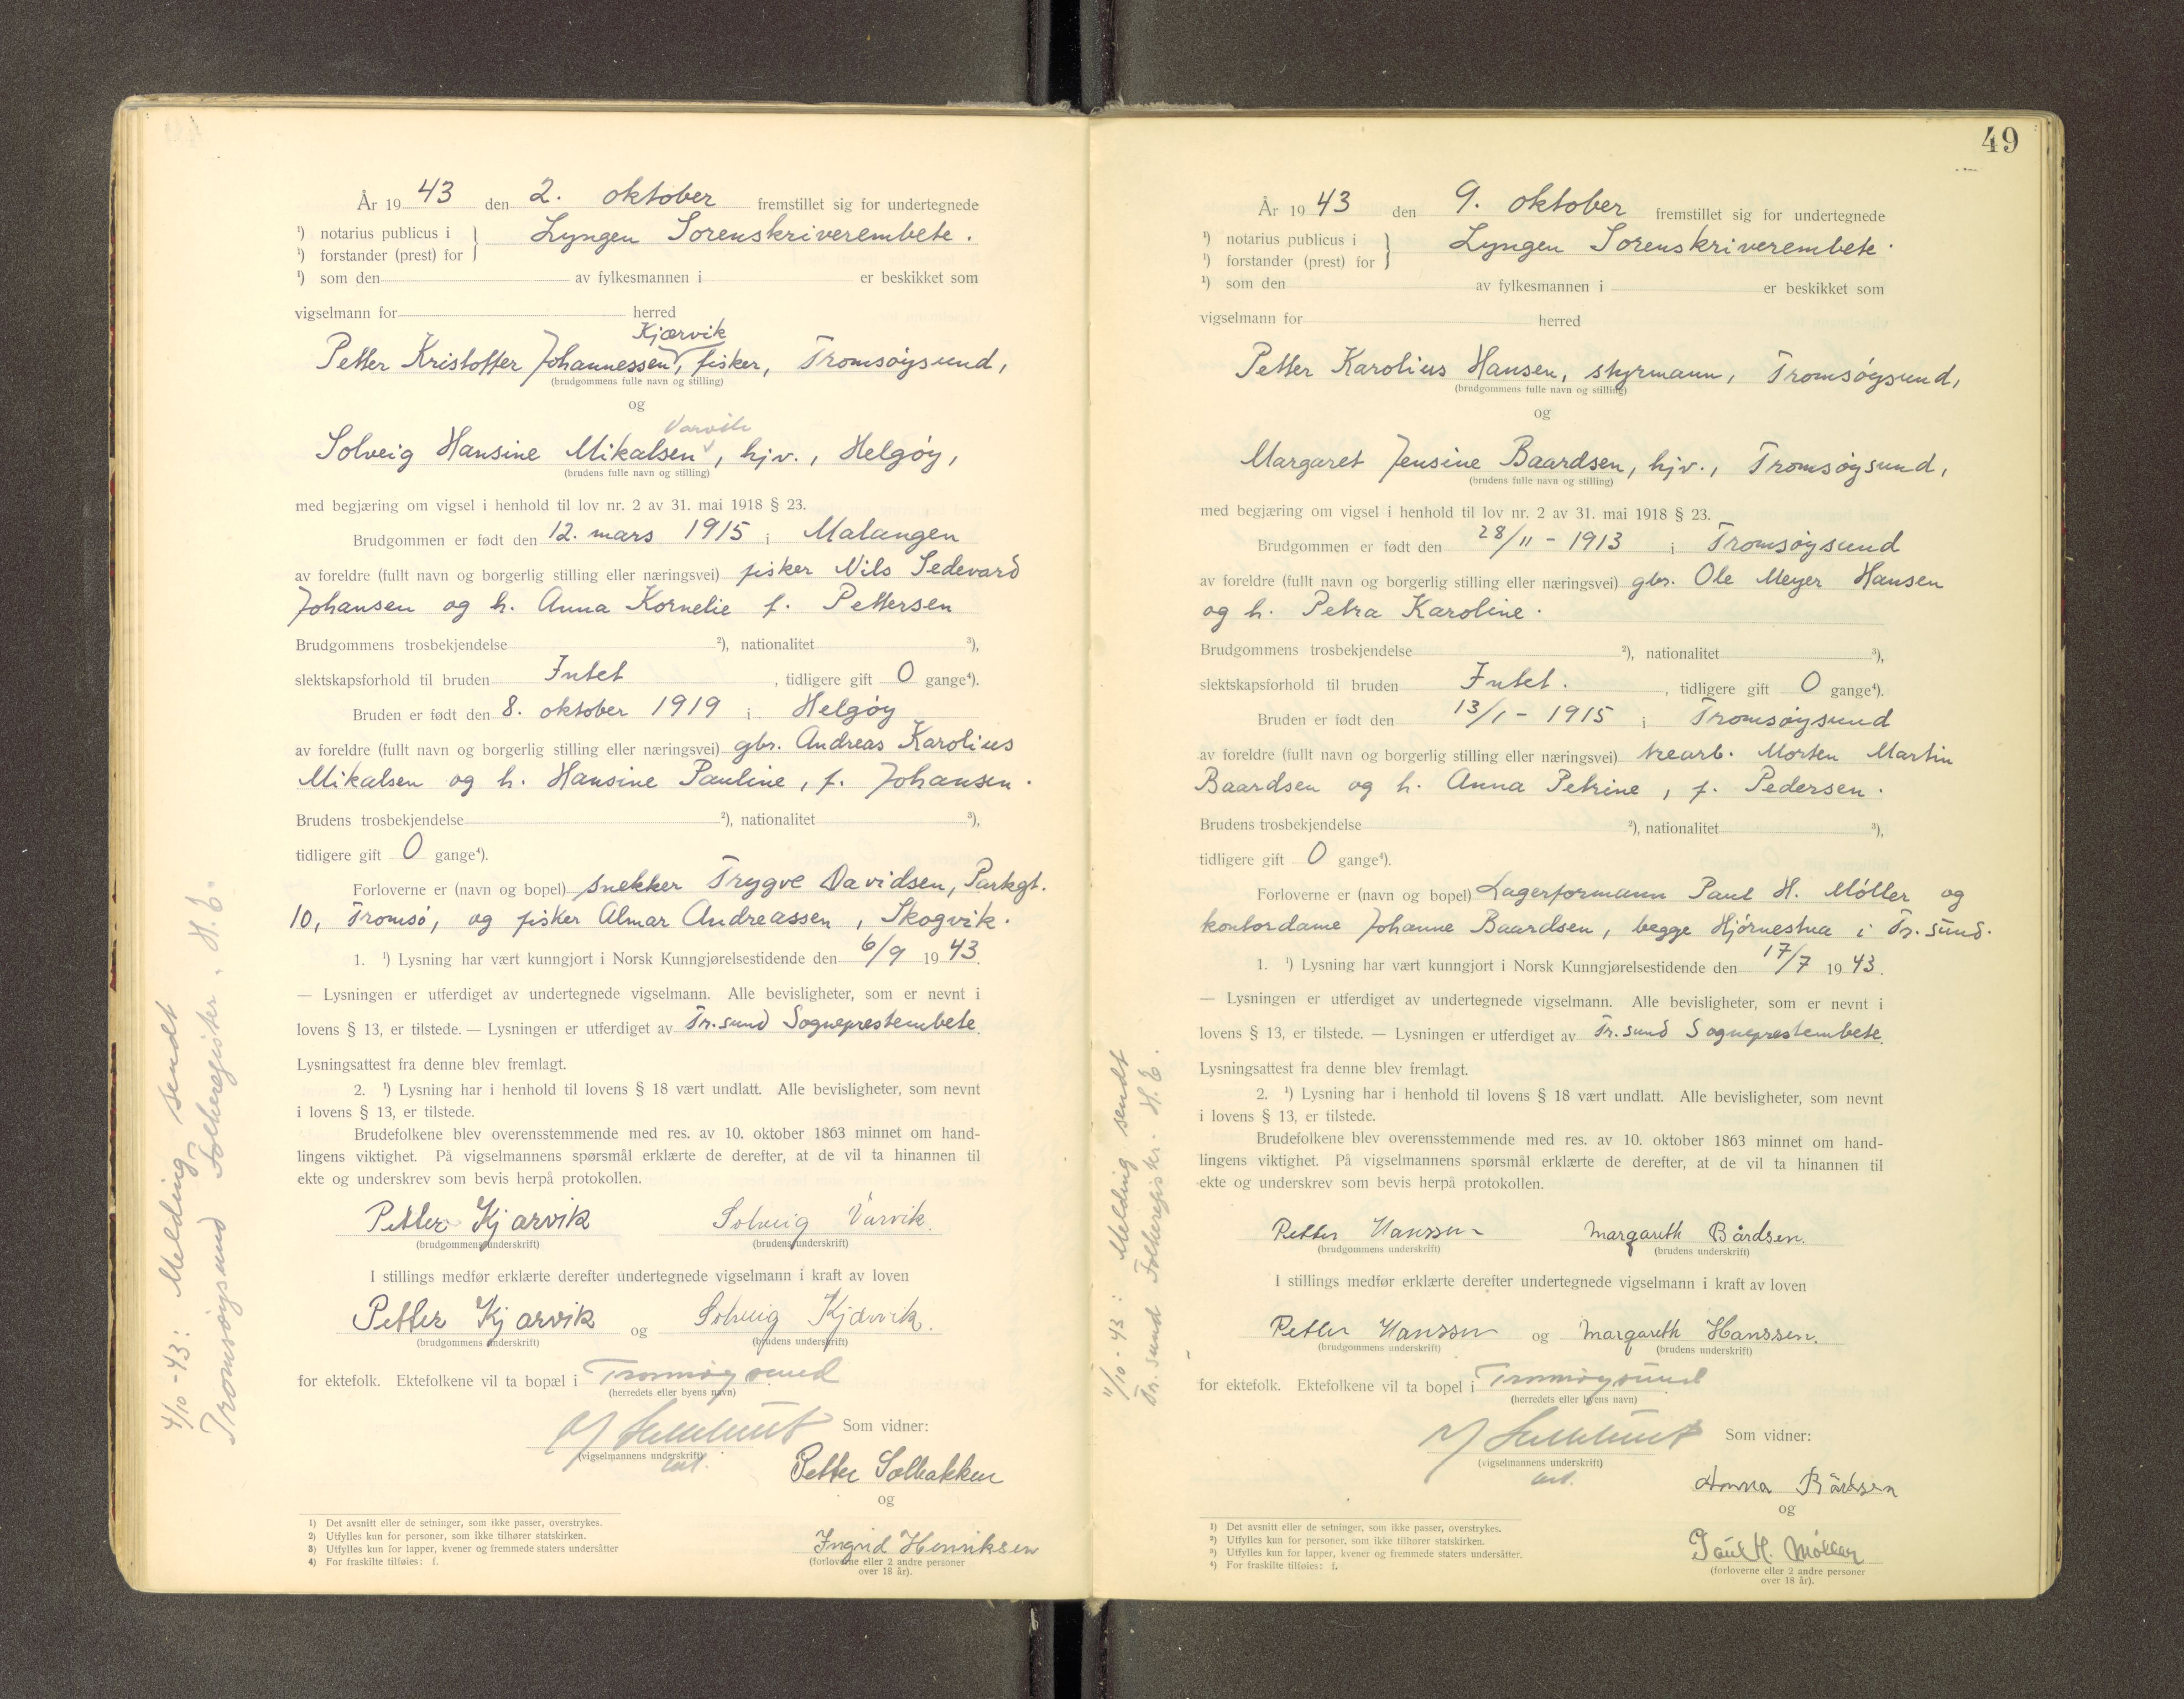 År 1943 den 2. oktober fremstillet sig for undertegnede
¹) notarius publicus i } Lyngen Sorenskriverembete.
¹) forstander (prest) for
¹) som den av fylkesmannen i er beskikket som
vigselmann for herred
Kjærvik
Petter Kristoffer Johannessen, fisker, Tromsøysund,
(brudgommens fulle navn og stilling)
og
Varvik
Solveig Hansine Mikalsen, hjv., Helgøy,
(brudens fulle navn og stilling)
med begjæring om vigsel i henhold til lov nr. 2 av 31. mai 1918 § 23.
Brudgommen er født den 12. mars 1915 i Malangen
av foreldre (fullt navn og borgerlig stilling eller næringsvei) fisker Nils Sedevard
Johansen og h. Anna Kornelie f. Pettersen
Brudgommens trosbekjendelse ²), nationalitet ³),
slektskapsforhold til bruden Intet, tidligere gift 0 gange⁴).
Bruden er født den 8. oktober 1919 i Helgøy
av foreldre (fullt navn og borgerlig stilling eller næringsvei) gbr. Andreas Karolius
Mikalsen og h. Hansine Pauline, f. Johansen.
Brudens trosbekjendelse ²), nationalitet ³),
tidligere gift 0 gange⁴).
Forloverne er (navn og bopel) snekker Trygve Davidsen, Parkgt.
10, Tromsø, og fisker Almar Andreassen, Skogvik.
1. ¹) Lysning har vært kunngjort i Norsk Kunngjørelsestidende den 6/9 1943.
— Lysningen er utferdiget av undertegnede vigselmann. Alle bevisligheter, som er nevnt i
lovens § 13, er tilstede. — Lysningen er utferdiget av Tr.sund Sogneprestembete.
Lysningsattest fra denne blev fremlagt.
2. ¹) Lysning har i henhold til lovens § 18 vært undlatt. Alle bevisligheter, som nevnt
i lovens § 13, er tilstede.
Brudefolkene blev overensstemmende med res. av 10. oktober 1863 minnet om hand-
lingens viktighet. På vigselmannens spørsmål erklærte de derefter, at de vil ta hinannen til
ekte og underskrev som bevis herpå protokollen.
Petter Kjærvik Solveig Varvik.
(brudgommens underskrift) (brudens underskrift)
I stillings medfør erklærte derefter undertegnede vigselmann i kraft av loven
Petter Kjærvik og Solveig Kjærvik.
(brudgommens underskrift) (brudens underskrift)
for ektefolk. Ektefolkene vil ta bopæl i Tromsøysund
(herredets eller byens navn)
Som vidner:
(vigselmannens underskrift)
Petter Solbakken
og
Ingrid Henriksen
(forloverne eller 2 andre personer
over 18 år).
1) Det avsnitt eller de setninger, som ikke passer, overstrykes.
2) Utfylles kun for personer, som ikke tilhører statskirken.
3) Utfylles kun for lapper, kvener og fremmede staters undersåtter
4) For fraskilte tilføies: f.
4/10-43: Melding sendt
Tromsøysund Folkeregister. H.E.
49
År 1943 den 9. oktober fremstillet sig for undertegnede
¹) notarius publicus i } Lyngen Sorenskriverembete.
¹) forstander (prest) for
¹) som den av fylkesmannen i er beskikket som
vigselmann for herred
Petter Karolius Hansen, styrmann, Tromsøysund,
(brudgommens fulle navn og stilling)
og
Margaret Jensine Baardsen, hjv., Tromsøysund,
(brudens fulle navn og stilling)
med begjæring om vigsel i henhold til lov nr. 2 av 31. mai 1918 § 23.
Brudgommen er født den 28/11-1913 i Tromsøysund
av foreldre (fullt navn og borgerlig stilling eller næringsvei) gbr. Ole Meyer Hansen
og h. Petra Karoline.
Brudgommens trosbekjendelse ²), nationalitet ³),
slektskapsforhold til bruden Intet., tidligere gift 0 gange⁴).
Bruden er født den 13/1-1915 i Tromsøysund
av foreldre (fullt navn og borgerlig stilling eller næringsvei) trearb. Morten Martin
Baardsen og h. Anna Petrine, f. Pedersen.
Brudens trosbekjendelse ²), nationalitet ³),
tidligere gift 0 gange⁴).
Forloverne er (navn og bopel) Lagerformann Paul H. Møller og
kontordame Johanne Baardsen, begge Hjørnestua i Tr.sund.
1. ¹) Lysning har vært kunngjort i Norsk Kunngjørelsestidende den 17/7 1943.
— Lysningen er utferdiget av undertegnede vigselmann. Alle bevisligheter, som er nevnt i
lovens § 13, er tilstede. — Lysningen er utferdiget av Tr.sund Sogneprestembete.
Lysningsattest fra denne blev fremlagt.
2. ¹) Lysning har i henhold til lovens § 18 vært undlatt. Alle bevisligheter, som nevnt
i lovens § 13, er tilstede.
Brudefolkene blev overensstemmende med res. av 10. oktober 1863 minnet om hand-
lingens viktighet. På vigselmannens spørsmål erklærte de derefter, at de vil ta hinannen til
ekte og underskrev som bevis herpå protokollen.
Petter Hanssen Margareth Bårdsen.
(brudgommens underskrift) (brudens underskrift)
I stillings medfør erklærte derefter undertegnede vigselmann i kraft av loven
Petter Hanssen og Margareth Hanssen.
(brudgommens underskrift) (brudens underskrift)
for ektefolk. Ektefolkene vil ta bopel i Tromsøysund
(herredets eller byens navn)
Som vidner:
(vigselmannens underskrift)
Anna Bårdsen
og
Paul H. Møller
(forloverne eller 2 andre personer
over 18 år).
1) Det avsnitt eller de setninger, som ikke passer, overstrykes.
2) Utfylles kun for personer, som ikke tilhører statskirken.
3) Utfylles kun for lapper, kvener og fremmede staters undersåtter.
4) For fraskilte tilføies: f.
11/10-43: Melding sendt
Tr.sund Folkeregister. H.E.